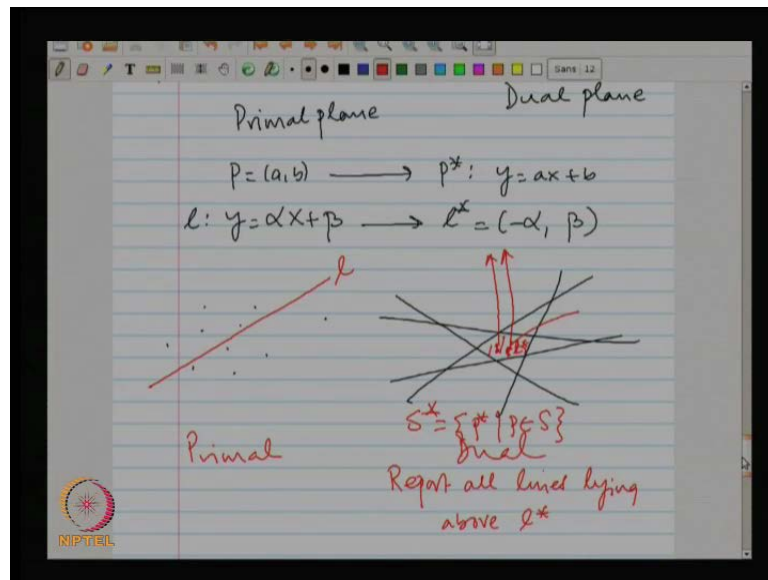 Sans 12
Primal plane
Dual plane
P = (a, b) ⟶ P*: y = ax + b
l: y = αx + β ⟶ l* = (-α, β)
l
S* = {P* | P ∈ S}
Primal
Dual
Report all lines lying
above l*
NPTEL